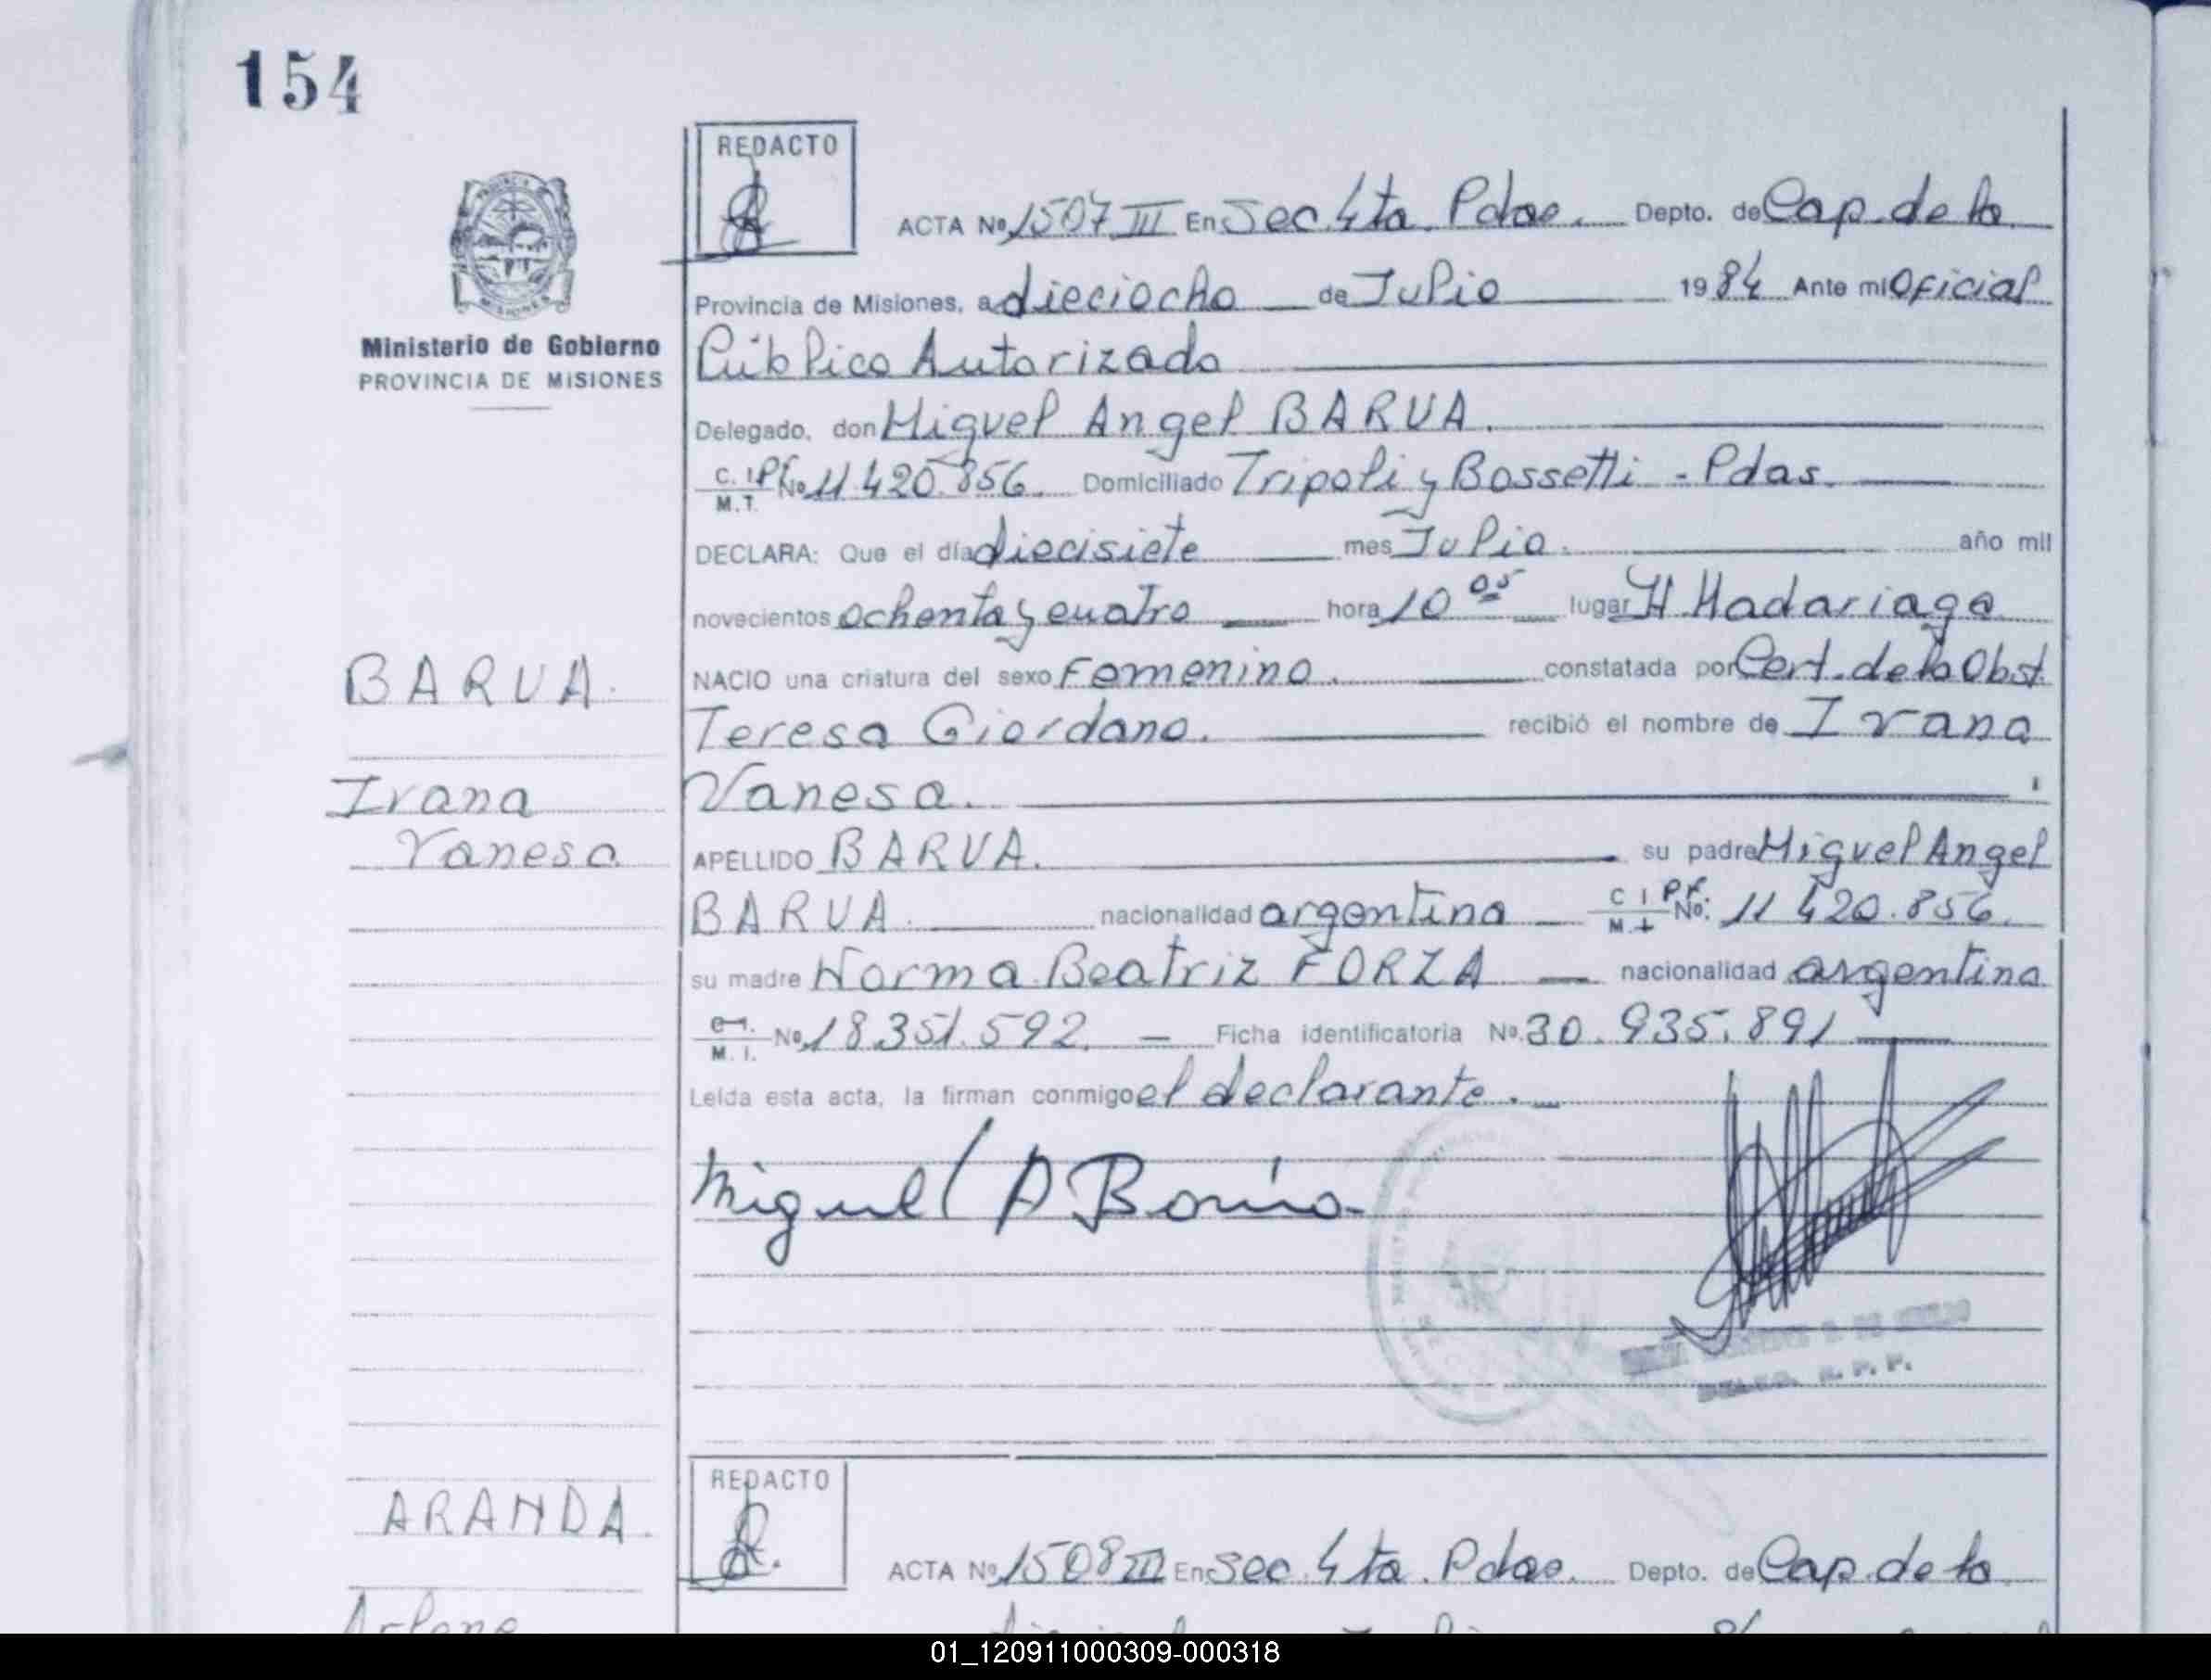 154
REDACTO
ACTA No 1507 III En Sec. 4ta. Pdas. Depto. de Cap. de la
Provincia de Misiones, a dieciocho de Julio 1984 Ante mi Oficial
Ministerio de Gobierno
PROVINCIA DE MISIONES
Público Autorizado
Delegado, don Miguel Angel BARUA.
C. I. PF. No 11.420.856. Domiciliado Tripoli y Bossetti - Pdas.
M. T.
DECLARA: Que el día diecisiete mes Julio. año mil
novecientos ochenta y cuatro hora 10 05 lugar H Madariaga
BARUA.
NACIO una criatura del sexo Femenino. constatada por Cert. de la Obst.
Teresa Giordano. recibió el nombre de Ivana
Ivana
Vanesa.
Vanesa
APELLIDO BARUA. su padre Miguel Angel
BARUA. nacionalidad argentina C I PF. No: 11 420.856.
M. I
su madre Norma Beatriz FORZA nacionalidad argentina
No 18.351.592. Ficha identificatoria No. 30.935.891
M. I.
Leída esta acta, la firman conmigo el declarante.
Miguel A Barúa
REDACTO
ARANDA.
ACTA No 1508 III En Sec. 4ta. Pdas. Depto. de Cap. de la
01_120911000309-000318